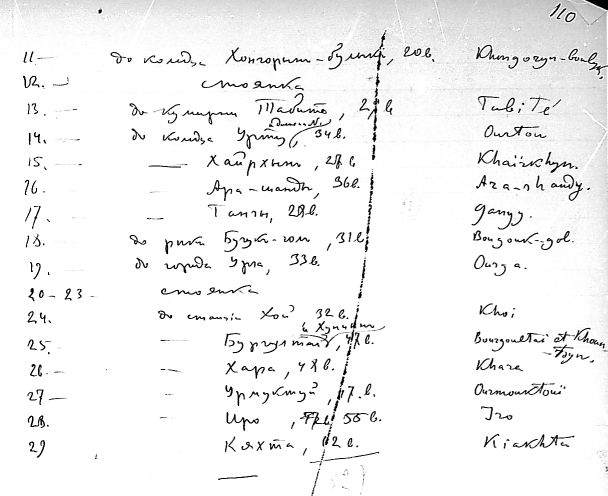 110
11 — до колодца Хонгорын-булык, 20в. Khongoryn-boulyk,
12. — стоянка
13. — до кумирни Табитэ, 2 в Tabi Té
14. — до колодца Урту, 34в. Ourtou
15. — — Хайрхын, 28в Khaïrkhyn.
16. — Ара-шанды, 36в. Ara-shandy.
17. — Тангы, 28в.
18. — до реки Бугук-гол, 31в Bougouk-gol.
19. — до города Урга, 33в. Ourga.
20-23 — стоянка
24. — до станціи Хой 32в. Khoi
25 — — Бургултай, 47в. Bourgoultai et Khoun-
26 — — Хара, 48в. Khara
27 — — Урмуктуй, 17.в. Ourmouktouï
28. — Иро, 55в. Iro
29 — Кяхта, 2в. Kiakhta